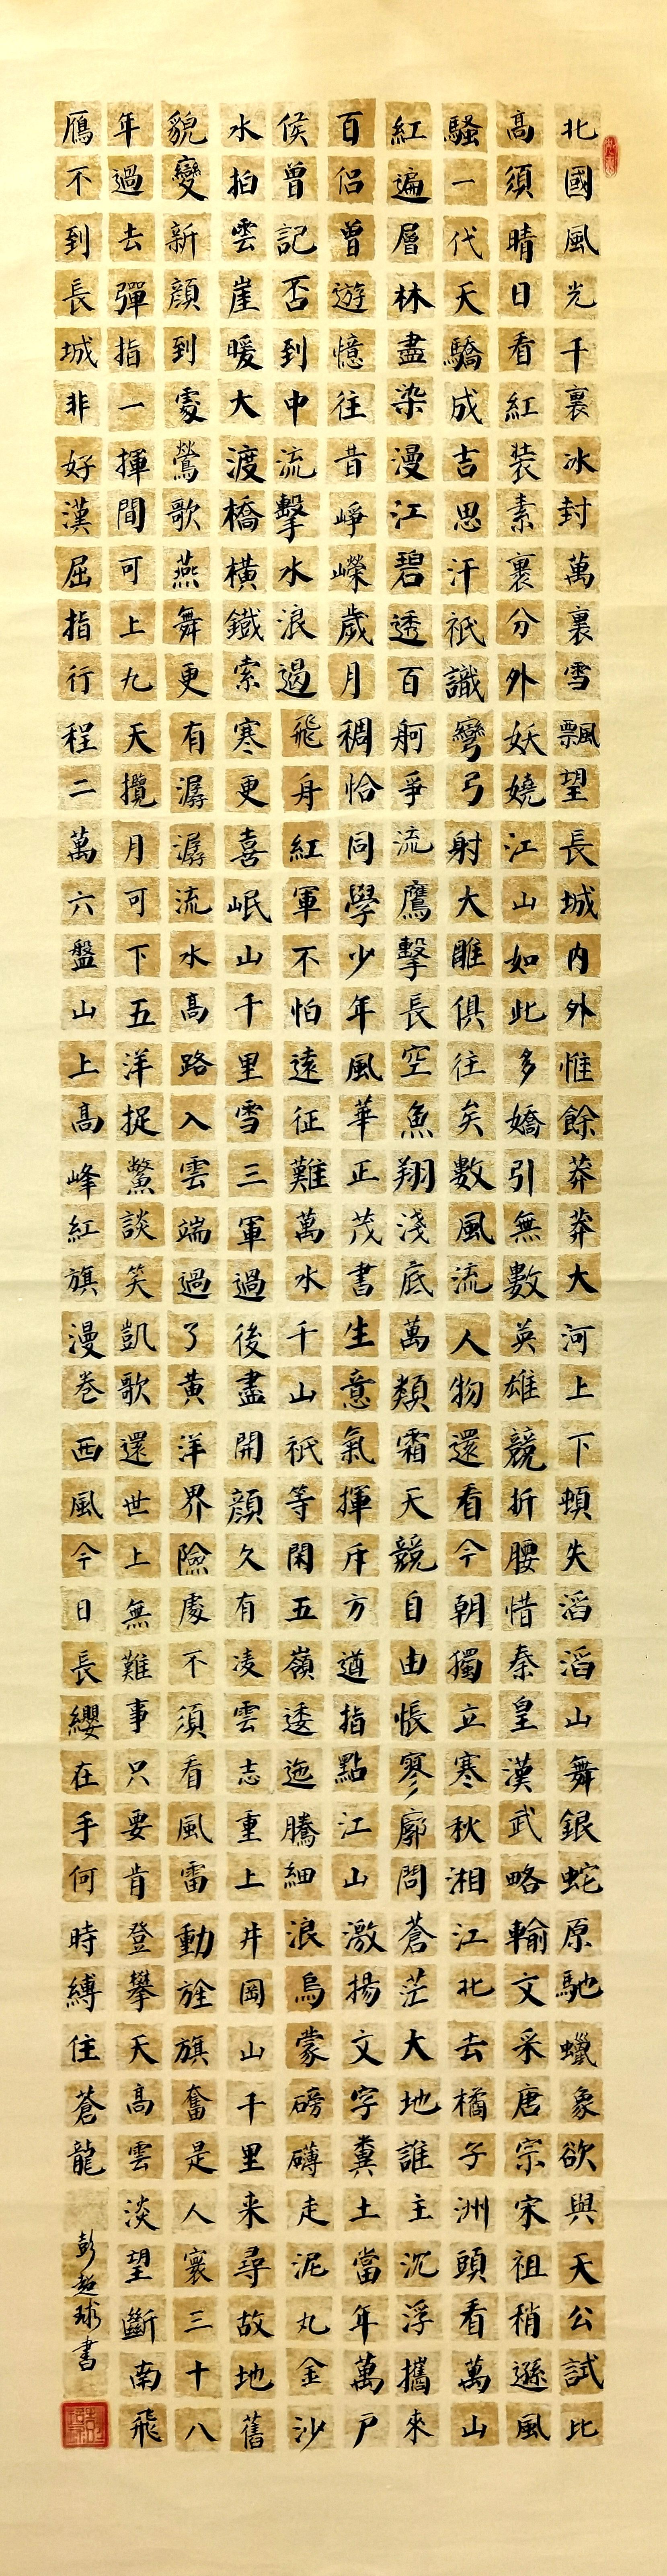 北國風光千裏冰封萬裏雪飄望長城內外惟餘莽莽大河上下頓失滔滔山舞銀蛇原馳蠟象欲與天公試比
高須晴日看紅裝素裹分外妖嬈江山如此多嬌引無數英雄競折腰惜秦皇漢武略輸文采唐宗宋祖稍遜風
騷一代天驕成吉思汗祇識彎弓射大雕俱往矣數風流人物還看今朝獨立寒秋湘江北去橘子洲頭看萬山
紅遍層林盡染漫江碧透百舸爭流鷹擊長空魚翔淺底萬類霜天競自由悵寥廓問蒼茫大地誰主沉浮攜來
百侶曾遊憶往昔崢嶸歲月稠恰同學少年風華正茂書生意氣揮斥方遒指點江山激揚文字糞土當年萬戶
侯曾記否到中流擊水浪遏飛舟紅軍不怕遠征難萬水千山祇等閑五嶺逶迤騰細浪烏蒙磅礴走泥丸金沙
水拍雲崖暖大渡橋橫鐵索寒更喜岷山千里雪三軍過後盡開顏久有凌雲志重上井岡山千里来尋故地舊
貌變新顏到處鶯歌燕舞更有潺潺流水高路入雲端過了黃洋界險處不須看風雷動旌旗奮是人寰三十八
年過去彈指一揮間可上九天攬月可下五洋捉鱉談笑凱歌還世上無難事只要肯登攀天高雲淡望斷南飛
鴈不到長城非好漢屈指行程二萬六盤山上高峰紅旗漫卷西風今日長纓在手何時縛住蒼龍
彭超球書